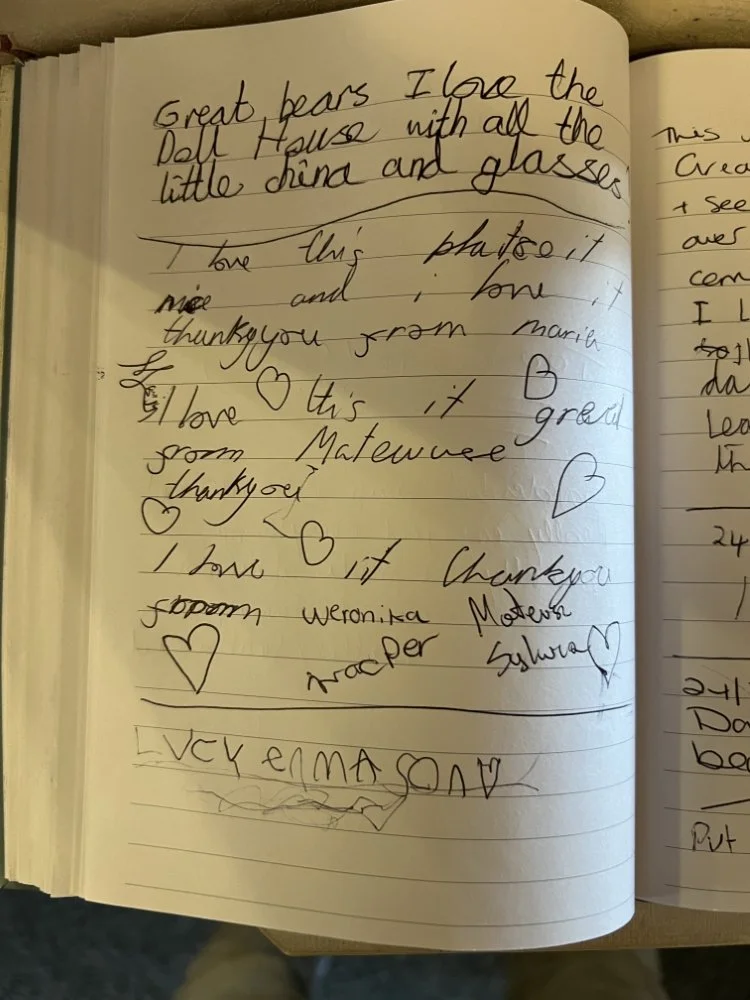 Great bears I love the
Doll House with all the
little china and glasses
I love this platse it
nice and i love it
thankyyou from maria
I love this it great
from Matewuee
thankyou
I love it thankyou
from weronika Mateusz
kacper Sylwia
LVCY EMMA SON
This
Crea
+ see
over
com
I L
da
Lea
th
24
24/
Do
bea
Put